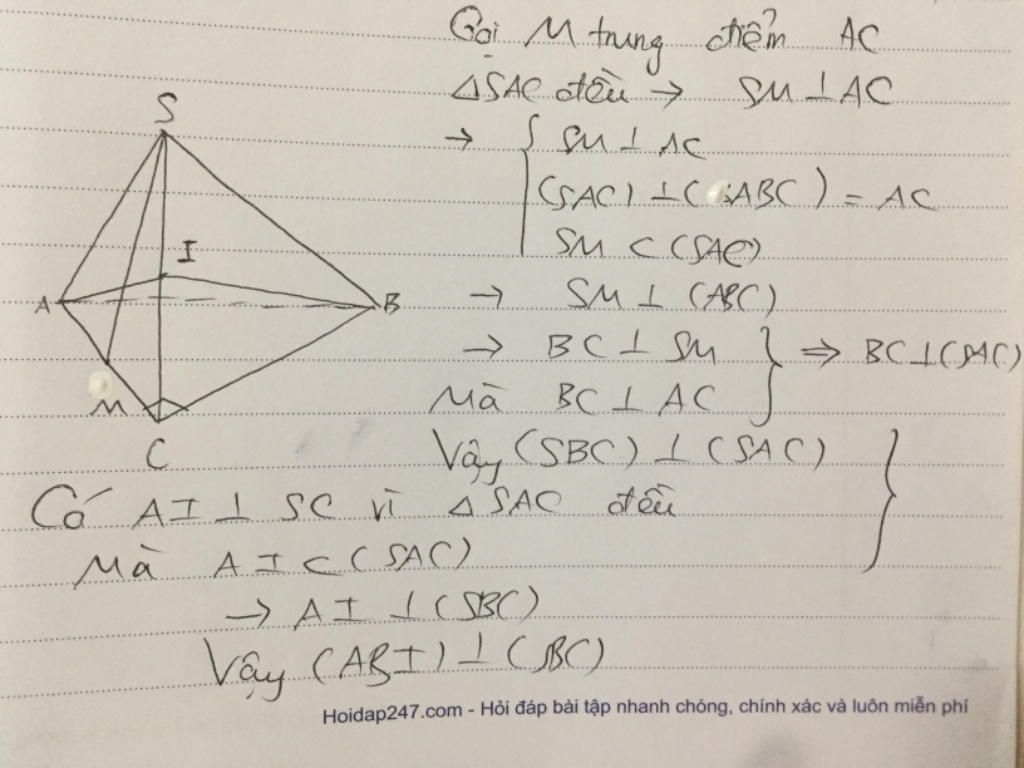 Gọi M trung điểm AC
△SAC đều → SM ⊥ AC
→ { SM ⊥ AC
(SAC) ⊥ (ABC) = AC
SM ⊂ (SAC)
→ SM ⊥ (ABC)
→ BC ⊥ SM } ⇒ BC ⊥ (SAC)
Mà BC ⊥ AC
Vậy (SBC) ⊥ (SAC) }
Có AI ⊥ SC vì △SAC đều
Mà AI ⊂ (SAC)
→ AI ⊥ (SBC)
Vậy (ABI) ⊥ (SBC)
S
I
A
B
M
C
Hoidap247.com - Hỏi đáp bài tập nhanh chóng, chính xác và luôn miễn phí